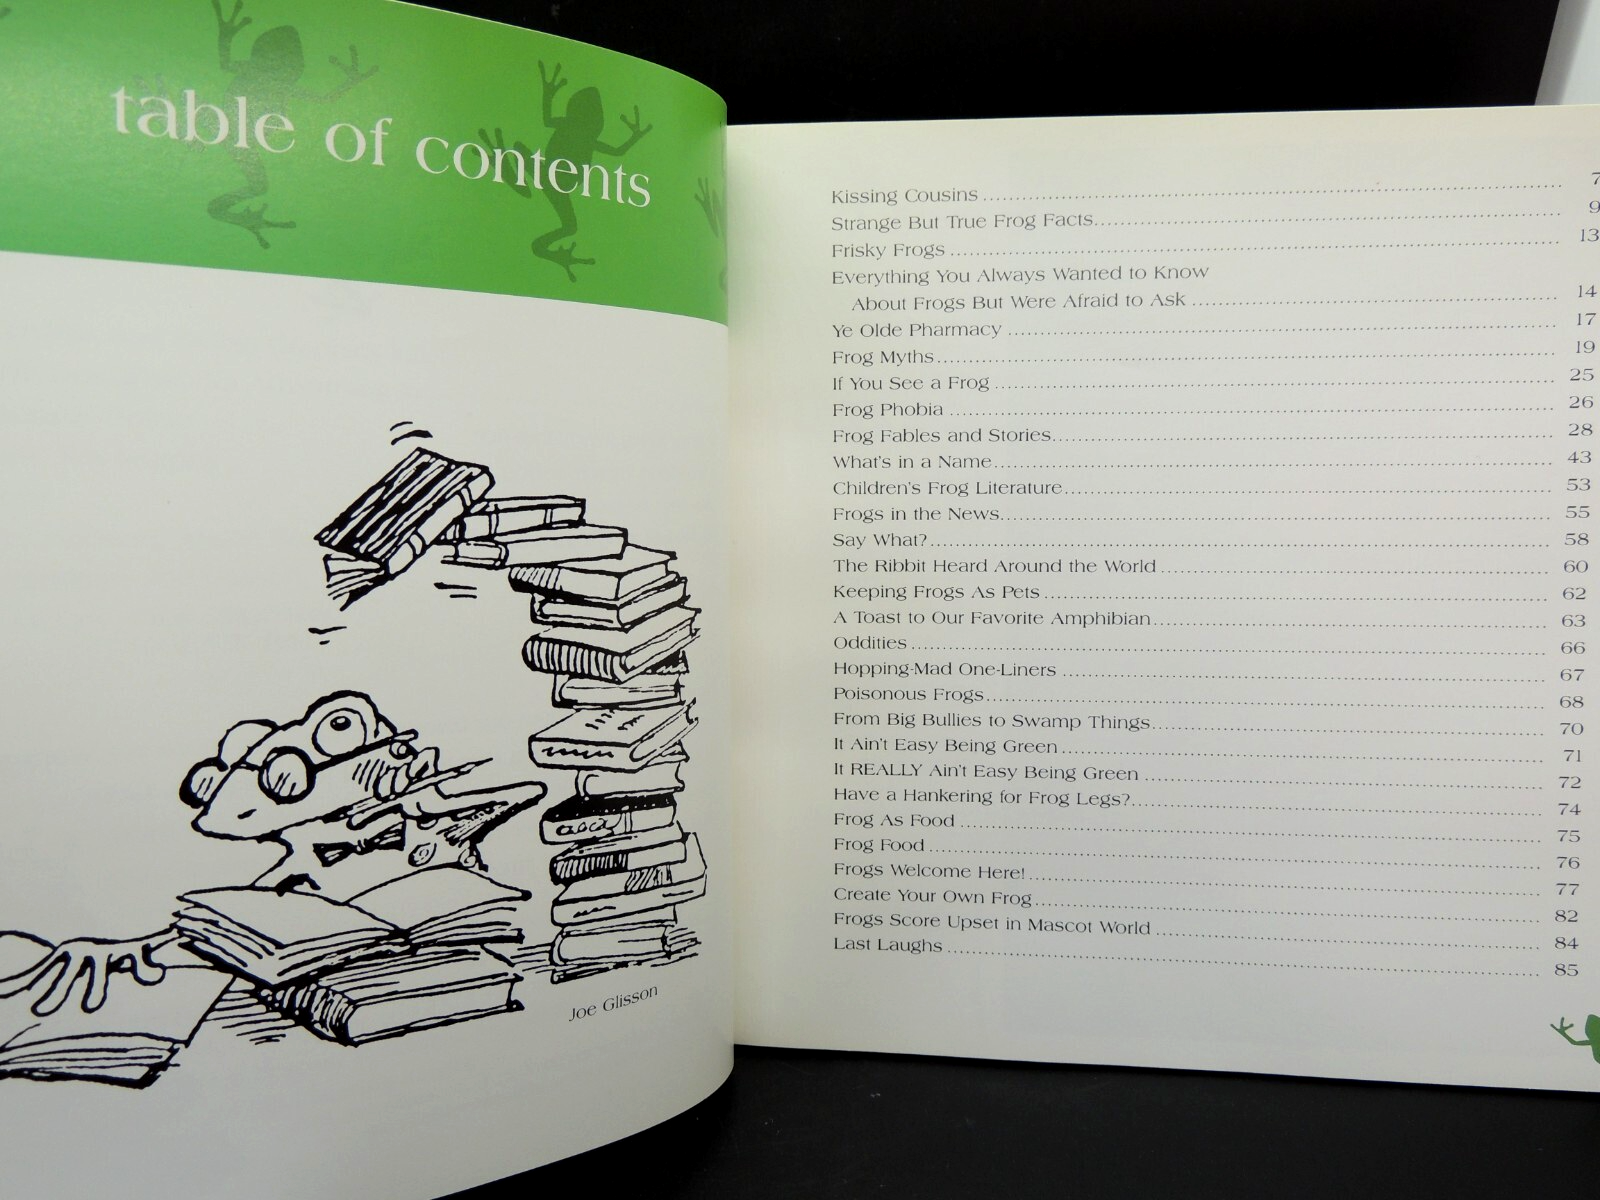 table of contents
Joe Glisson
Kissing Cousins 7
Strange But True Frog Facts 9
Frisky Frogs 13
Everything You Always Wanted to Know
About Frogs But Were Afraid to Ask 14
Ye Olde Pharmacy 17
Frog Myths 19
If You See a Frog 25
Frog Phobia 26
Frog Fables and Stories 28
What's in a Name 43
Children's Frog Literature 53
Frogs in the News 55
Say What? 58
The Ribbit Heard Around the World 60
Keeping Frogs As Pets 62
A Toast to Our Favorite Amphibian 63
Oddities 66
Hopping-Mad One-Liners 67
Poisonous Frogs 68
From Big Bullies to Swamp Things 70
It Ain't Easy Being Green 71
It REALLY Ain't Easy Being Green 72
Have a Hankering for Frog Legs? 74
Frog As Food 75
Frog Food 76
Frogs Welcome Here! 77
Create Your Own Frog 82
Frogs Score Upset in Mascot World 84
Last Laughs 85